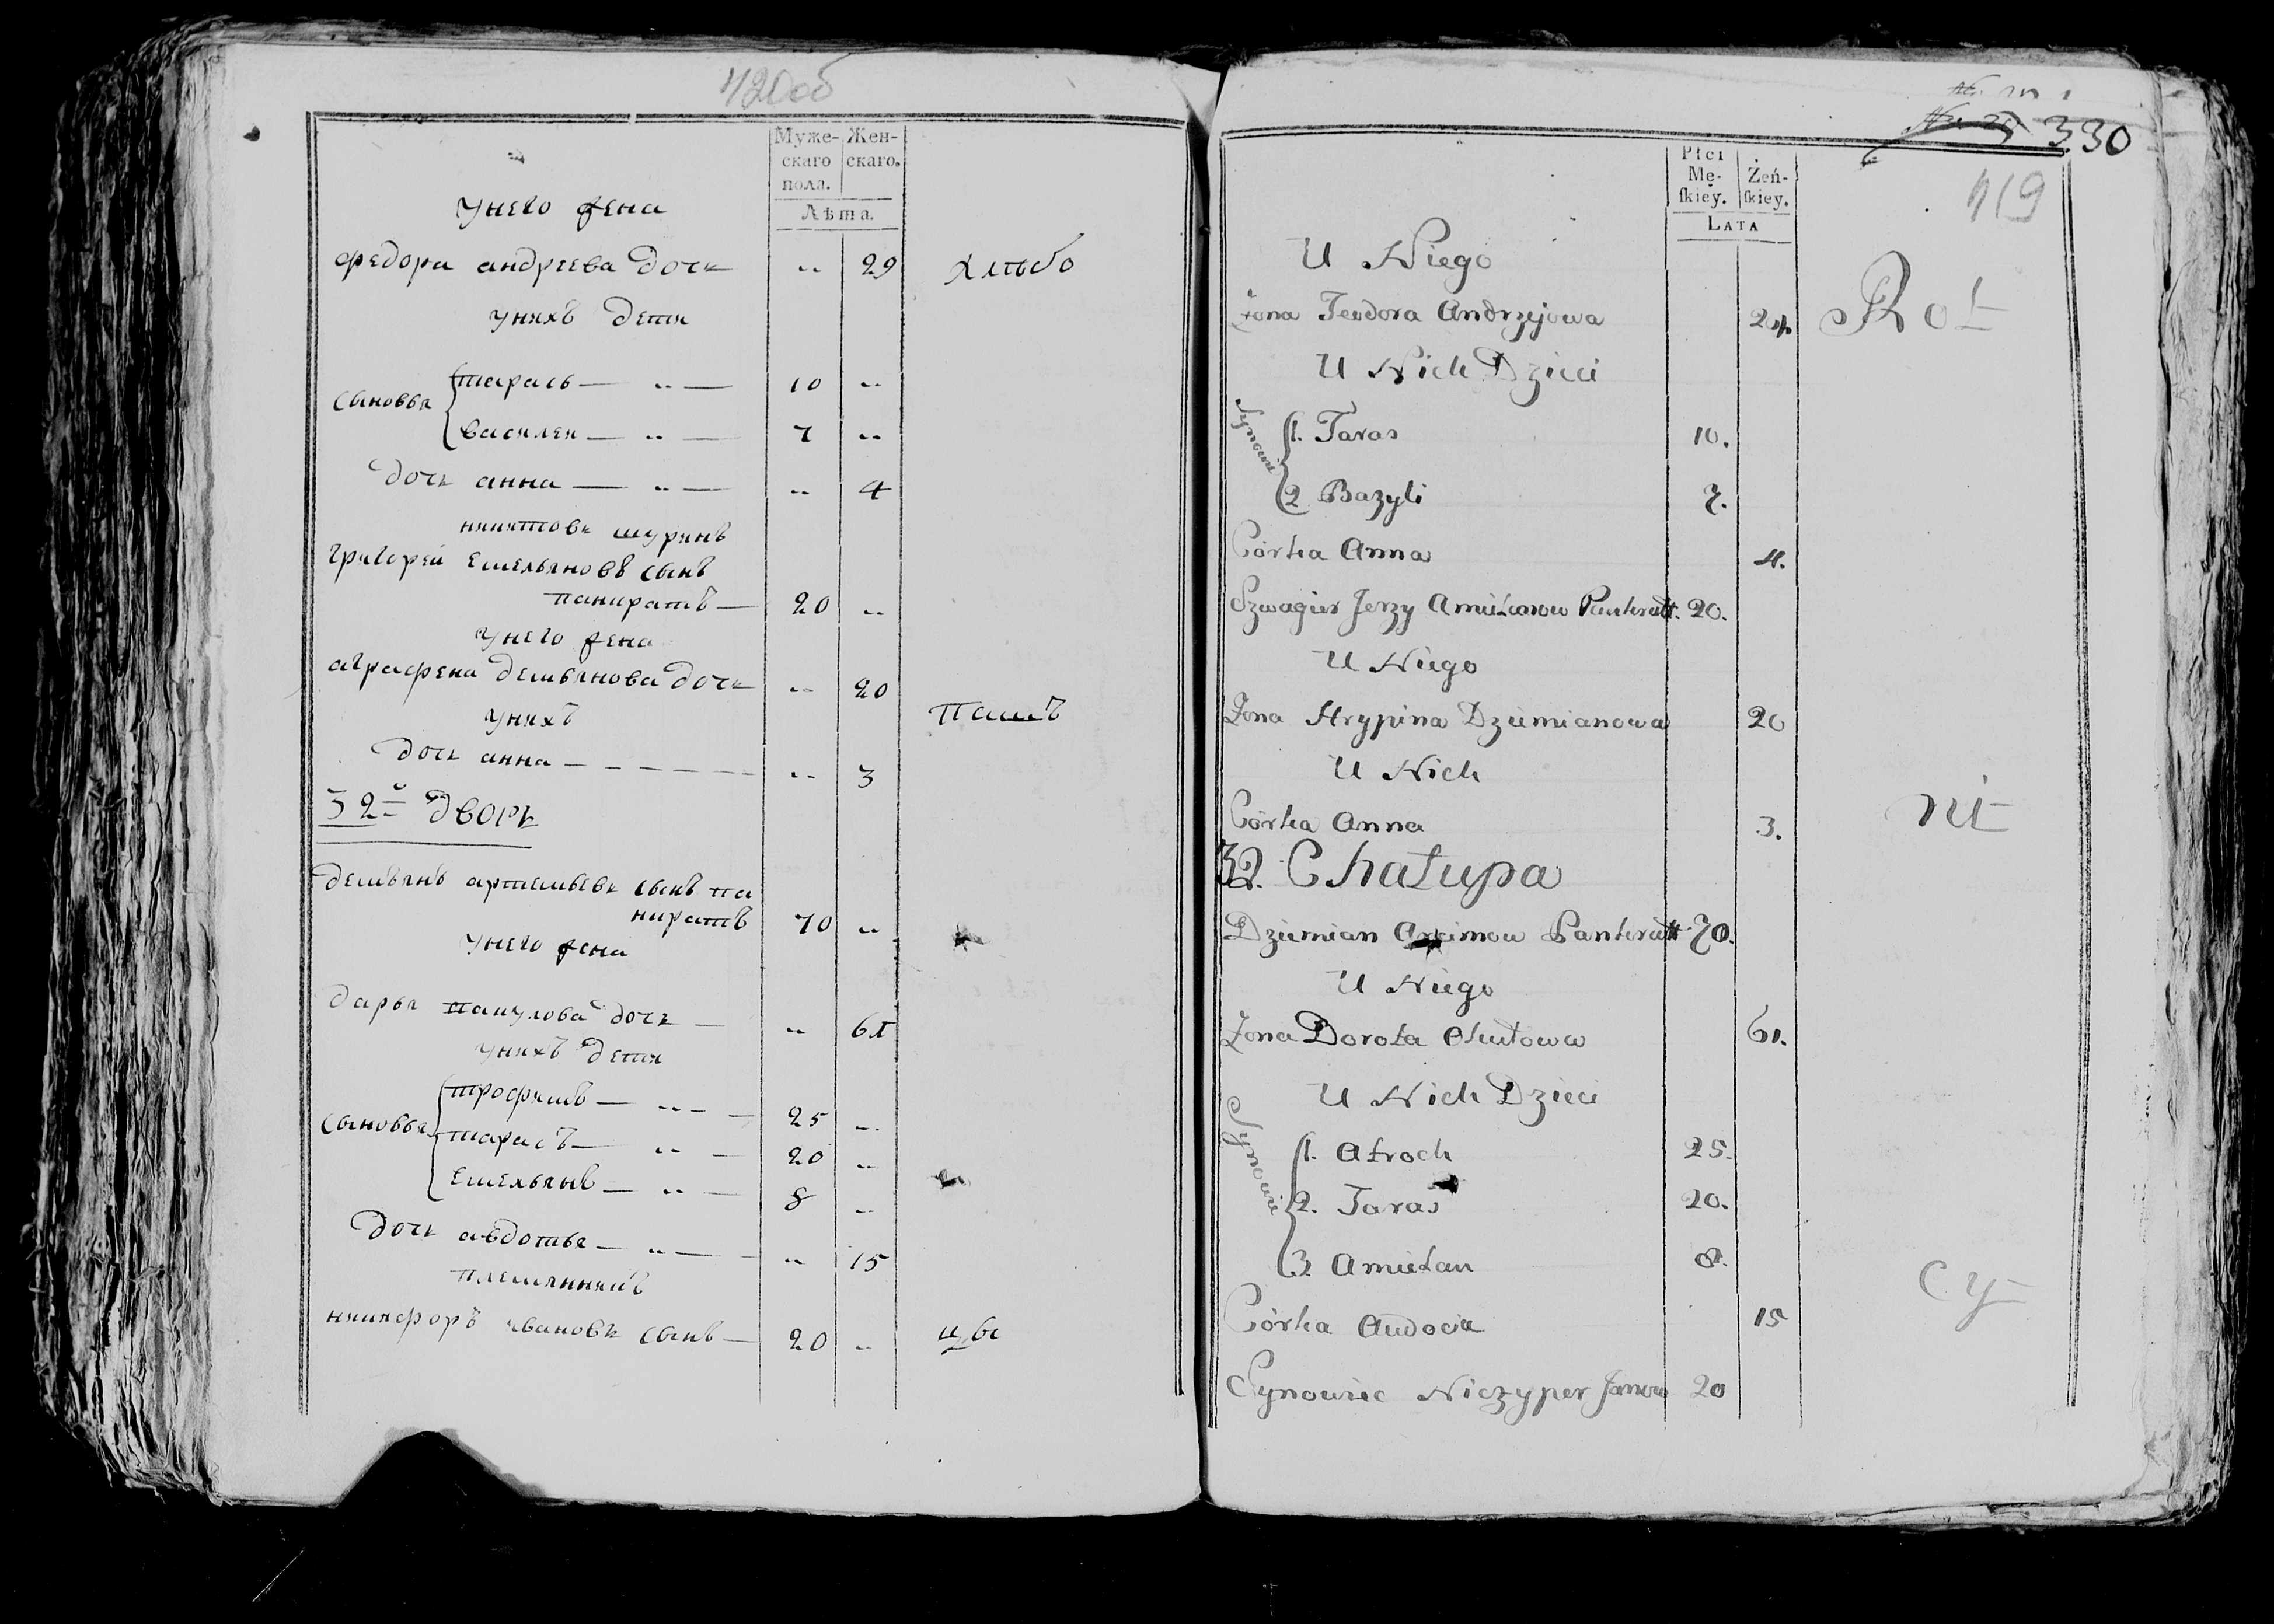 420об
Муже- Жен-
скаго скаго.
пола.
Лѣта.
У него жена
Федора андреева дочь .. 29 хлѣбо
У нихъ дети
сыновья
тарасъ — .. — 10 ..
василеи — .. — 7 ..
дочь анна — .. — .. 4
никитовъ шуринъ
григореи Емельяновъ сынъ
панкратъ — 20 ..
У него жена
аграфена демьянова дочь .. 20
У нихъ паш
дочь анна — — — .. 3
32й дворъ
демьянъ артемьевъ сынъ па
нкратъ 70 ..
У него жена
дарья дочь — .. 61
У нихъ дети
сыновья
трофимъ — .. — 25 ..
тарасъ — .. — 20 ..
Емельянъ — .. — 8 ..
дочь авдотья — .. — .. 15
племянникъ
никифоръ ивановъ сынъ — 20 ..
330
419
Płci
Mę- Żeń-
skiey. skiey.
LATA
U Niego
Żona Teodora Andrzejowa Rot
U Nich Dzieci
Synowie
1. Taras 10.
2 Bazyli 7.
Córka Anna 4.
Szwagier Jerzy Amielanow Pankratt. 20.
U Niego
Żona Hrypina Dziemianowa 20
U Nich
Córka Anna 3.
32. Chałupa
Dziemian Arcimow Pankratt 70.
U Niego
Żona Dorota 61.
U Nich Dzieci
Synowie
1. Atroch 25.
2. Taras 20.
3 Amielan 8.
Córka Audocia 15
Synowiec Niczyper Janow 20